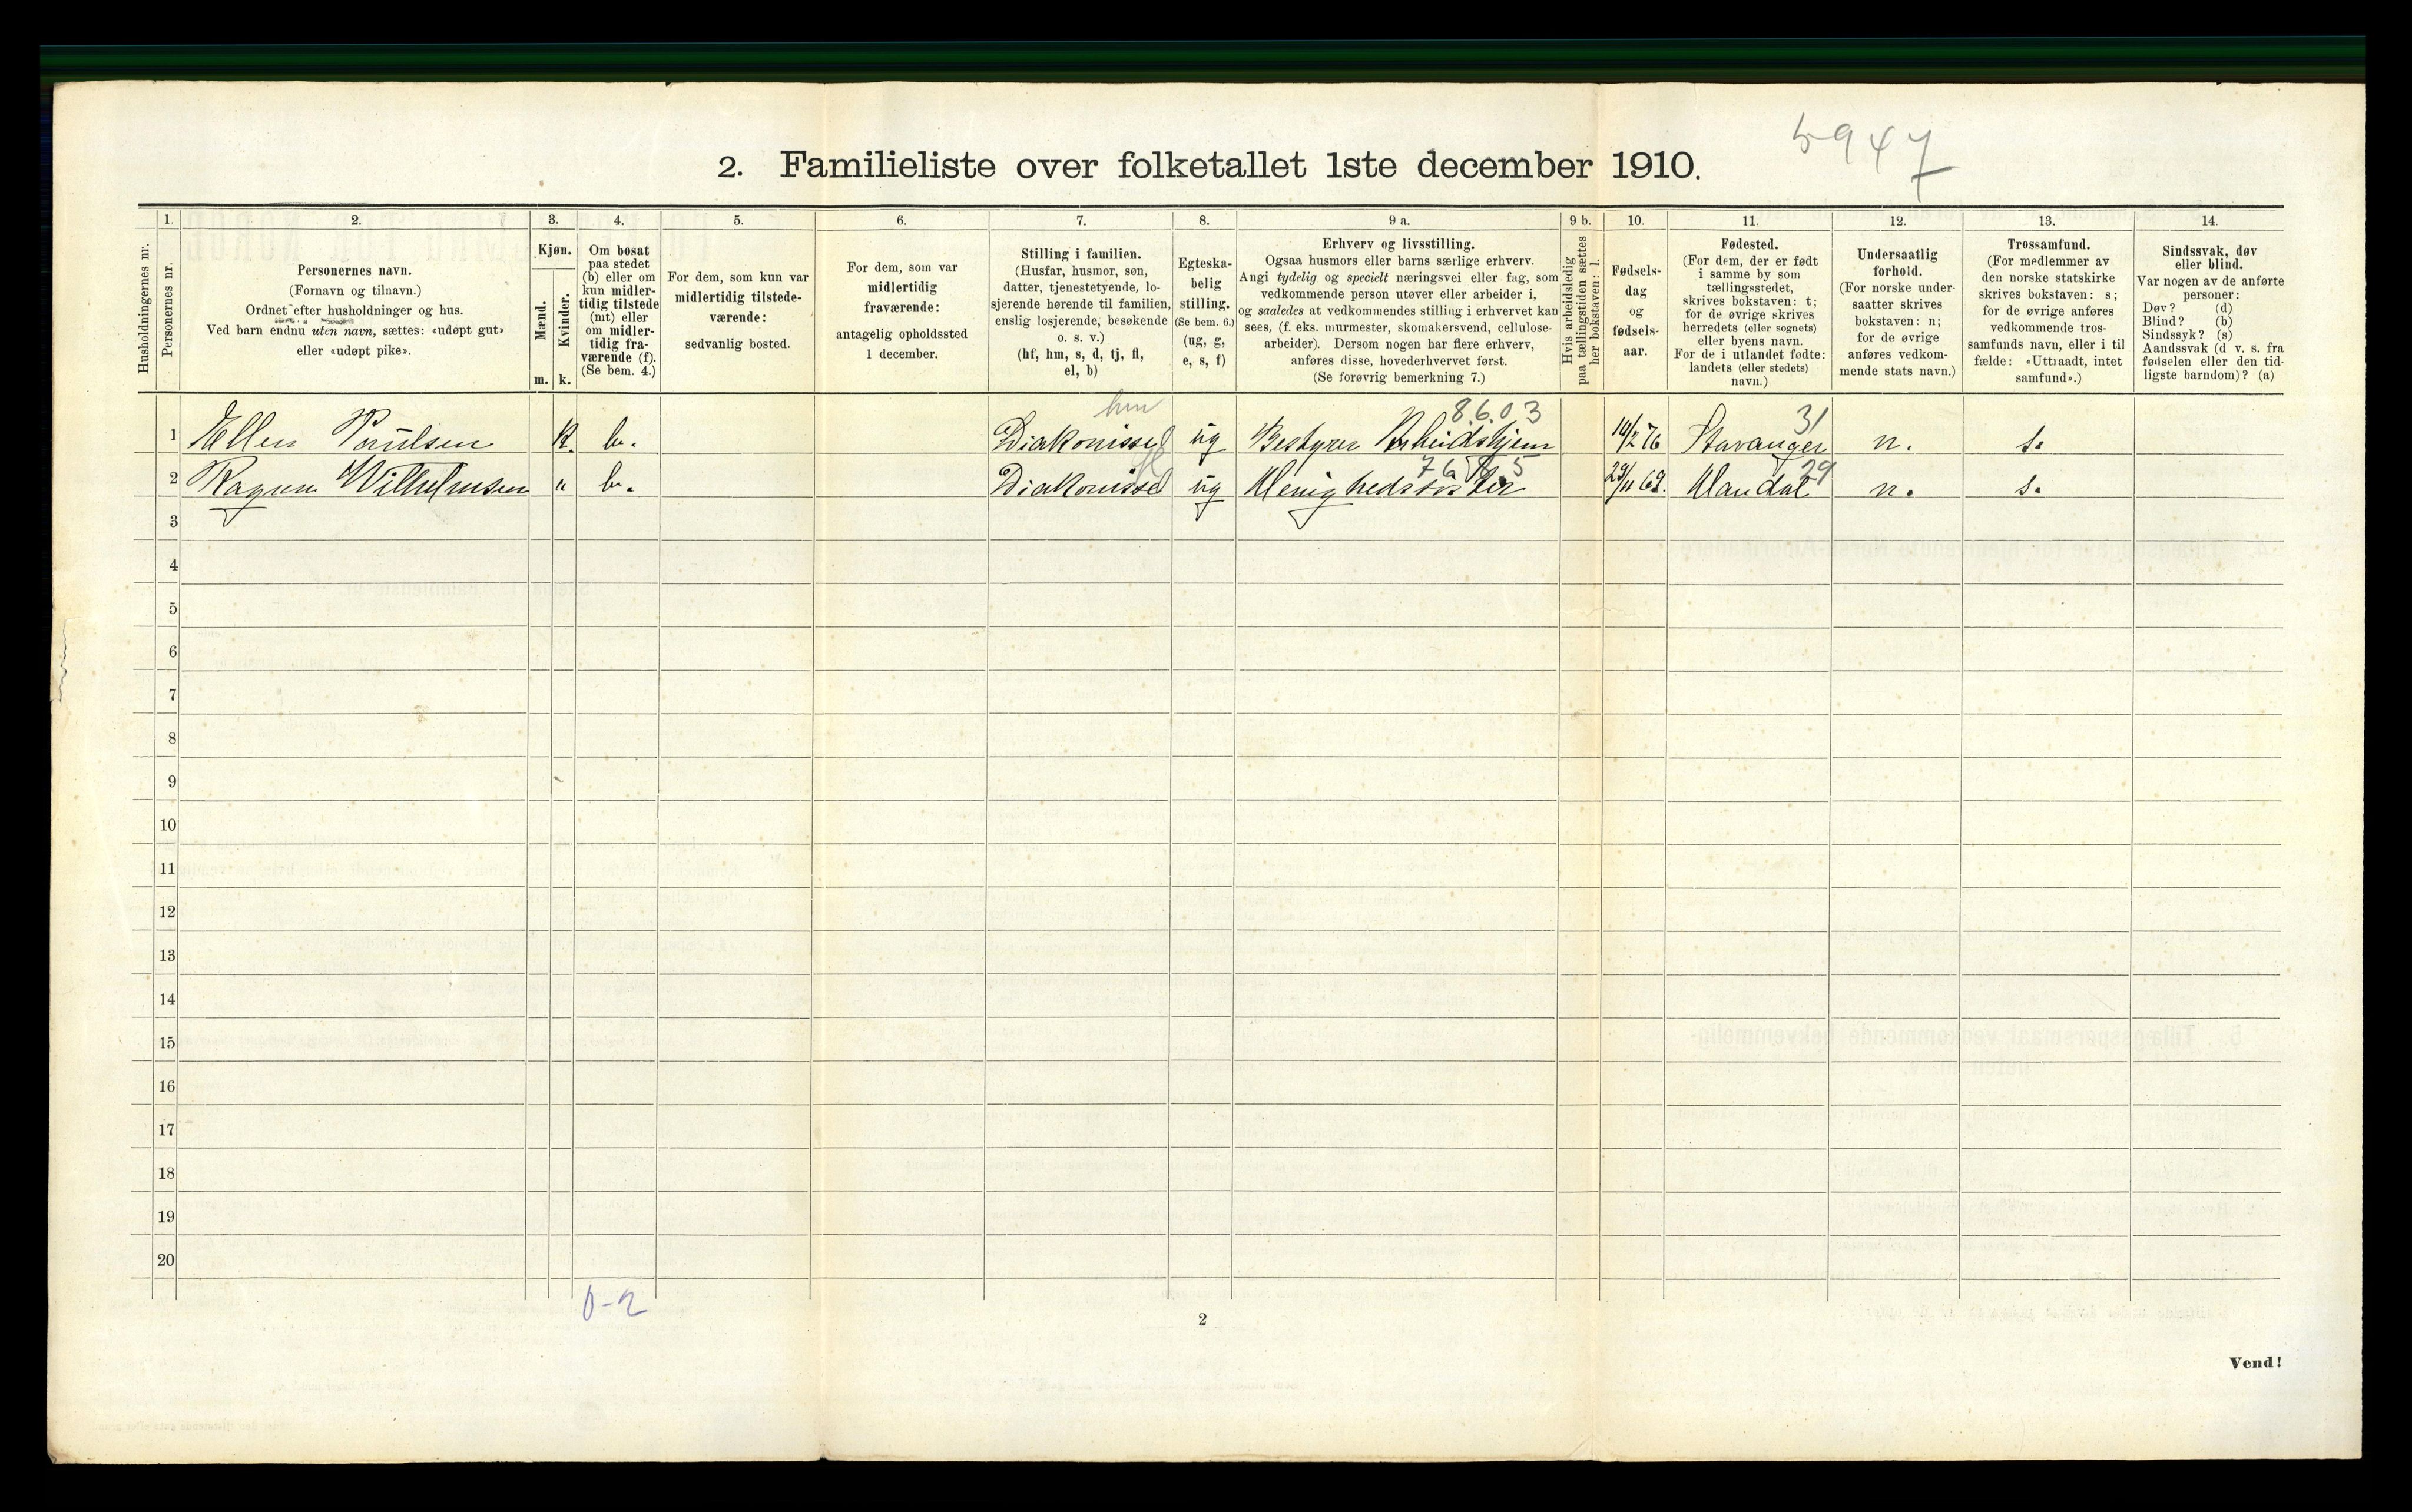 5947
2. Familieliste over folketallet 1ste december 1910.
Husholdningernes nr.
1.
Personernes nr.
2.
Personernes navn.
(Fornavn og tilnavn.)
Ordnet efter husholdninger og hus.
Ved barn endnu uten navn, sættes: «udøpt gut»
eller «udøpt pike».
3.
Kjøn.
Mænd.
m.
Kvinder.
k.
4.
Om bosat
paa stedet
(b) eller om
kun midler-
tidig tilstede
(mt) eller
om midler-
tidig fra-
værende (f).
(Se bem. 4.)
5.
For dem, som kun var
midlertidig tilstede-
værende:
sedvanlig bosted.
6.
For dem, som var
midlertidig
fraværende:
antagelig opholdssted
1 december.
7.
Stilling i familien.
(Husfar, husmor, søn,
datter, tjenestetyende, lo-
sjerende hørende til familien,
enslig losjerende, besøkende
o. s. v.)
(hf, hm, s, d, tj, fl,
el, b)
8.
Egteska-
belig
stilling.
(Se bem. 6.)
(ug, g,
e, s, f)
9 a.
Erhverv og livsstilling.
Ogsaa husmors eller barns særlige erhverv.
Angi tydelig og specielt næringsvei eller fag, som
vedkommende person utøver eller arbeider i,
og saaledes at vedkommendes stilling i erhvervet kan
sees, (f. eks. murmester, skomakersvend, cellulose-
arbeider). Dersom nogen har flere erhverv,
anføres disse, hovederhvervet først.
(Se forøvrig bemerkning 7.)
9 b.
Hvis arbeidsledig
paa tællingstiden sættes
her bokstaven: l.
10.
Fødsels-
dag
og
fødsels-
aar.
11.
Fødested.
(For dem, der er født
i samme by som
tællingsstedet,
skrives bokstaven: t;
for de øvrige skrives
herredets (eller sognets)
eller byens navn.
For de i utlandet fødte:
landets (eller stedets)
navn.)
12.
Undersaatlig
forhold.
(For norske under-
saatter skrives
bokstaven: n;
for de øvrige
anføres vedkom-
mende stats navn.)
13.
Trossamfund.
(For medlemmer av
den norske statskirke
skrives bokstaven: s;
for de øvrige anføres
vedkommende tros-
samfunds navn, eller i til
fælde: «Uttraadt, intet
samfund».)
14.
Sindssvak, døv
eller blind.
Var nogen av de anførte
personer:
Døv? (d)
Blind? (b)
Sindssyk? (s)
Aandssvak (d v. s. fra
fødselen eller den tid-
ligste barndom)? (a)
hm 8.6.03 31
1 Ellen Paulsen k. b. Diakonisse ug Bestyrer Arbeidshjem 14/2 76 Stavanger n. s.
29
2 Ragna Wilhelmsen " b. Diakonisse ug Menighedssøster 29/11 69. Mandal n. s.
3
4
5
6
7
8
9
10
11
12
13
14
15
16
17
18
19
20
0-2
2
Vend!